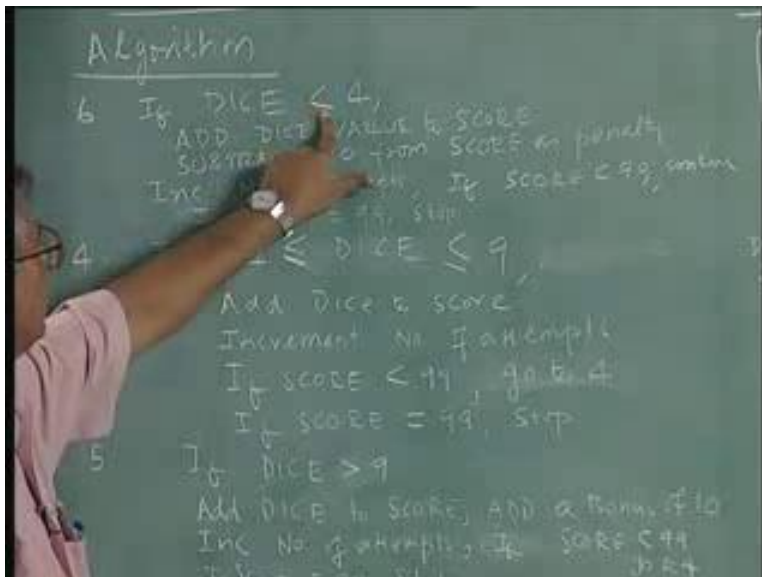 Algorithm
6 If DICE < 4,
ADD DICE VALUE to SCORE
from SCORE as penalty
Inc If SCORE < 99, continue
= 99, Stop
4 ≤ DICE ≤ 9,
Add Dice to score
Increment No of attempts
If SCORE < 99, go to 4
If SCORE = 99, Stop
5 If DICE > 9
Add DICE to SCORE, ADD a Bonus of 10
Inc No of attempts, If SCORE < 99